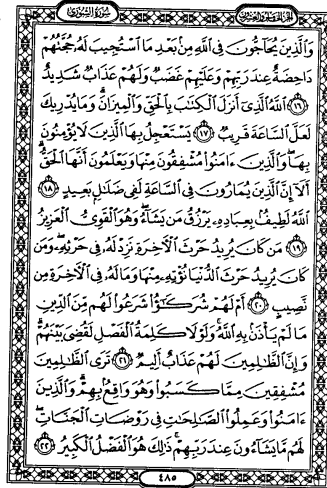 الجزء الخامس والعشرون سورة الشورى
وَالَّذِينَ يُحَاجُّونَ فِي اللَّهِ مِنْ بَعْدِ مَا اسْتُجِيبَ لَهُ حُجَّتُهُمْ
دَاحِضَةٌ عِنْدَ رَبِّهِمْ وَعَلَيْهِمْ غَضَبٌ وَلَهُمْ عَذَابٌ شَدِيدٌ
١٦ اللَّهُ الَّذِي أَنْزَلَ الْكِتَٰبَ بِالْحَقِّ وَالْمِيزَانَ وَمَا يُدْرِيكَ
لَعَلَّ السَّاعَةَ قَرِيبٌ ١٧ يَسْتَعْجِلُ بِهَا الَّذِينَ لَا يُؤْمِنُونَ
بِهَا وَالَّذِينَ ءَامَنُوا مُشْفِقُونَ مِنْهَا وَيَعْلَمُونَ أَنَّهَا الْحَقُّ
أَلَا إِنَّ الَّذِينَ يُمَارُونَ فِي السَّاعَةِ لَفِي ضَلَٰلٍ بَعِيدٍ ١٨
اللَّهُ لَطِيفٌ بِعِبَادِهِ يَرْزُقُ مَنْ يَشَاءُ وَهُوَ الْقَوِيُّ الْعَزِيزُ
١٩ مَنْ كَانَ يُرِيدُ حَرْثَ الْآخِرَةِ نَزِدْ لَهُ فِي حَرْثِهِ وَمَنْ
كَانَ يُرِيدُ حَرْثَ الدُّنْيَا نُؤْتِهِ مِنْهَا وَمَا لَهُ فِي الْآخِرَةِ مِنْ
نَصِيبٍ ٢٠ أَمْ لَهُمْ شُرَكَٰٓؤُا شَرَعُوا لَهُمْ مِنَ الدِّينِ
مَا لَمْ يَأْذَنْ بِهِ اللَّهُ وَلَوْلَا كَلِمَةُ الْفَصْلِ لَقُضِيَ بَيْنَهُمْ
وَإِنَّ الظَّٰلِمِينَ لَهُمْ عَذَابٌ أَلِيمٌ ٢١ تَرَى الظَّٰلِمِينَ
مُشْفِقِينَ مِمَّا كَسَبُوا وَهُوَ وَاقِعٌ بِهِمْ وَالَّذِينَ
ءَامَنُوا وَعَمِلُوا الصَّٰلِحَاتِ فِي رَوْضَاتِ الْجَنَّاتِ
لَهُمْ مَا يَشَاءُونَ عِنْدَ رَبِّهِمْ ذَٰلِكَ هُوَ الْفَضْلُ الْكَبِيرُ ٢٢
٤٨٥